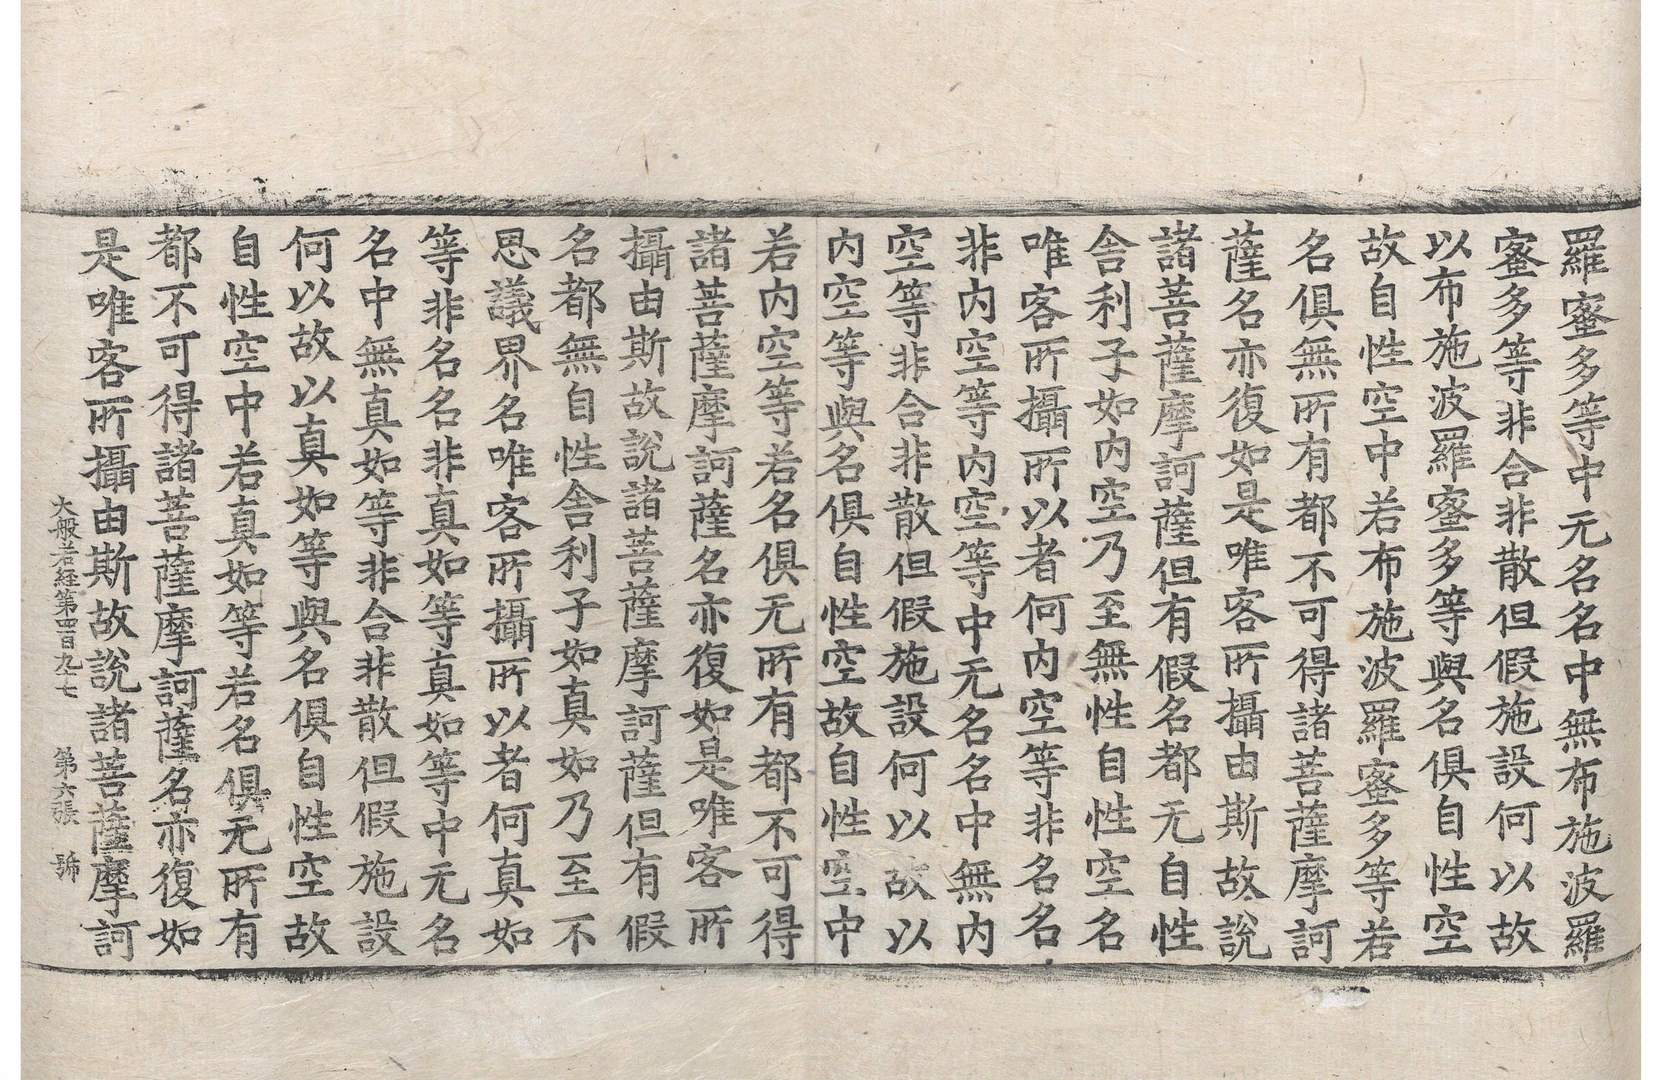 羅蜜多等中无名名中無布施波羅
蜜多等非合非散但假施設何以故
以布施波羅蜜多等與名俱自性空
故自性空中若布施波羅蜜多等若
名俱無所有都不可得諸菩薩摩訶
薩名亦復如是唯客所攝由斯故說
諸菩薩摩訶薩但有假名都无自性
舍利子如內空乃至無性自性空名
唯客所攝所以者何內空等非名名
非內空等內空等中无名名中無內
空等非合非散但假施設何以故以
內空等與名俱自性空故自性空中
若內空等若名俱无所有都不可得
諸菩薩摩訶薩名亦復如是唯客所
攝由斯故說諸菩薩摩訶薩但有假
名都無自性舍利子如真如乃至不
思議界名唯客所攝所以者何真如
等非名名非真如等真如等中无名
名中無真如等非合非散但假施設
何以故以真如等與名俱自性空故
自性空中若真如等若名俱无所有
都不可得諸菩薩摩訶薩名亦復如
是唯客所攝由斯故說諸菩薩摩訶
大般若經第四百九七 第六張 號